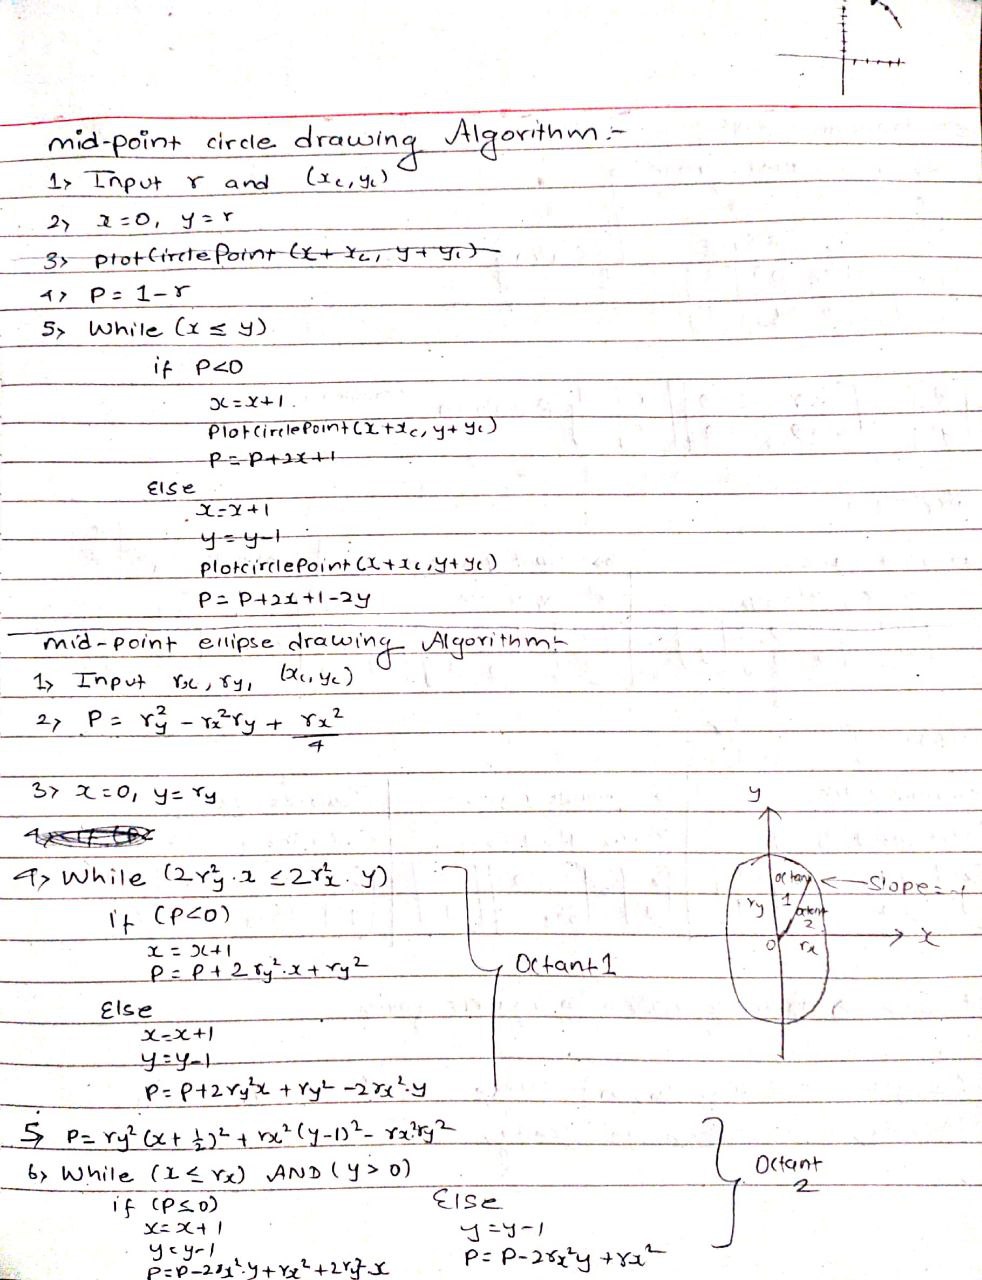 mid-point circle drawing Algorithm:-
1> Input r and (xc, yc)
2> x=0, y=r
3> plotCirclePoint (x+xc, y+yc)
4> P = 1-r
5> While (x ≤ y)
if P<0
x=x+1
PlotCirclePoint (x+xc, y+yc)
P = P+2x+1
Else
x=x+1
y=y-1
plotcirclePoint (x+xc, y+yc)
P = P+2x+1-2y
mid-point ellipse drawing Algorithm:-
1> Input rx, ry, (xc, yc)
2> P = ry² - rx²ry + rx²/4
3> x=0, y=ry
4> While (2ry².x ≤ 2rx².y)
if (P<0)
x = x+1
P = P + 2ry².x + ry²
Else
x=x+1
y=y-1
P = P+2ry²x + ry² -2rx².y
Octant 1
y
octant 1
Slope=-1
ry
octent 2
0
rx
x
5> P= ry² (x+½)² + rx² (y-1)² - rx²ry²
6> While (x ≤ rx) AND (y > 0)
if (P≤0)
x=x+1
y=y-1
P=P-2rx².y+rx²+2ry².x
Else
y=y-1
P= P-2rx²y +rx²
Octant 2